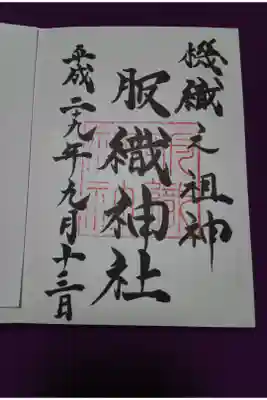 機織之祖神
服織神社
平成二十九年九月十三日